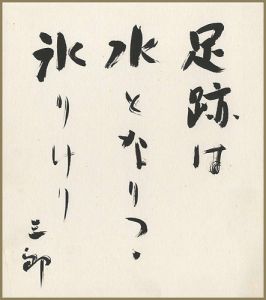 足跡は
水となりつゝ
氷りけり
三郎